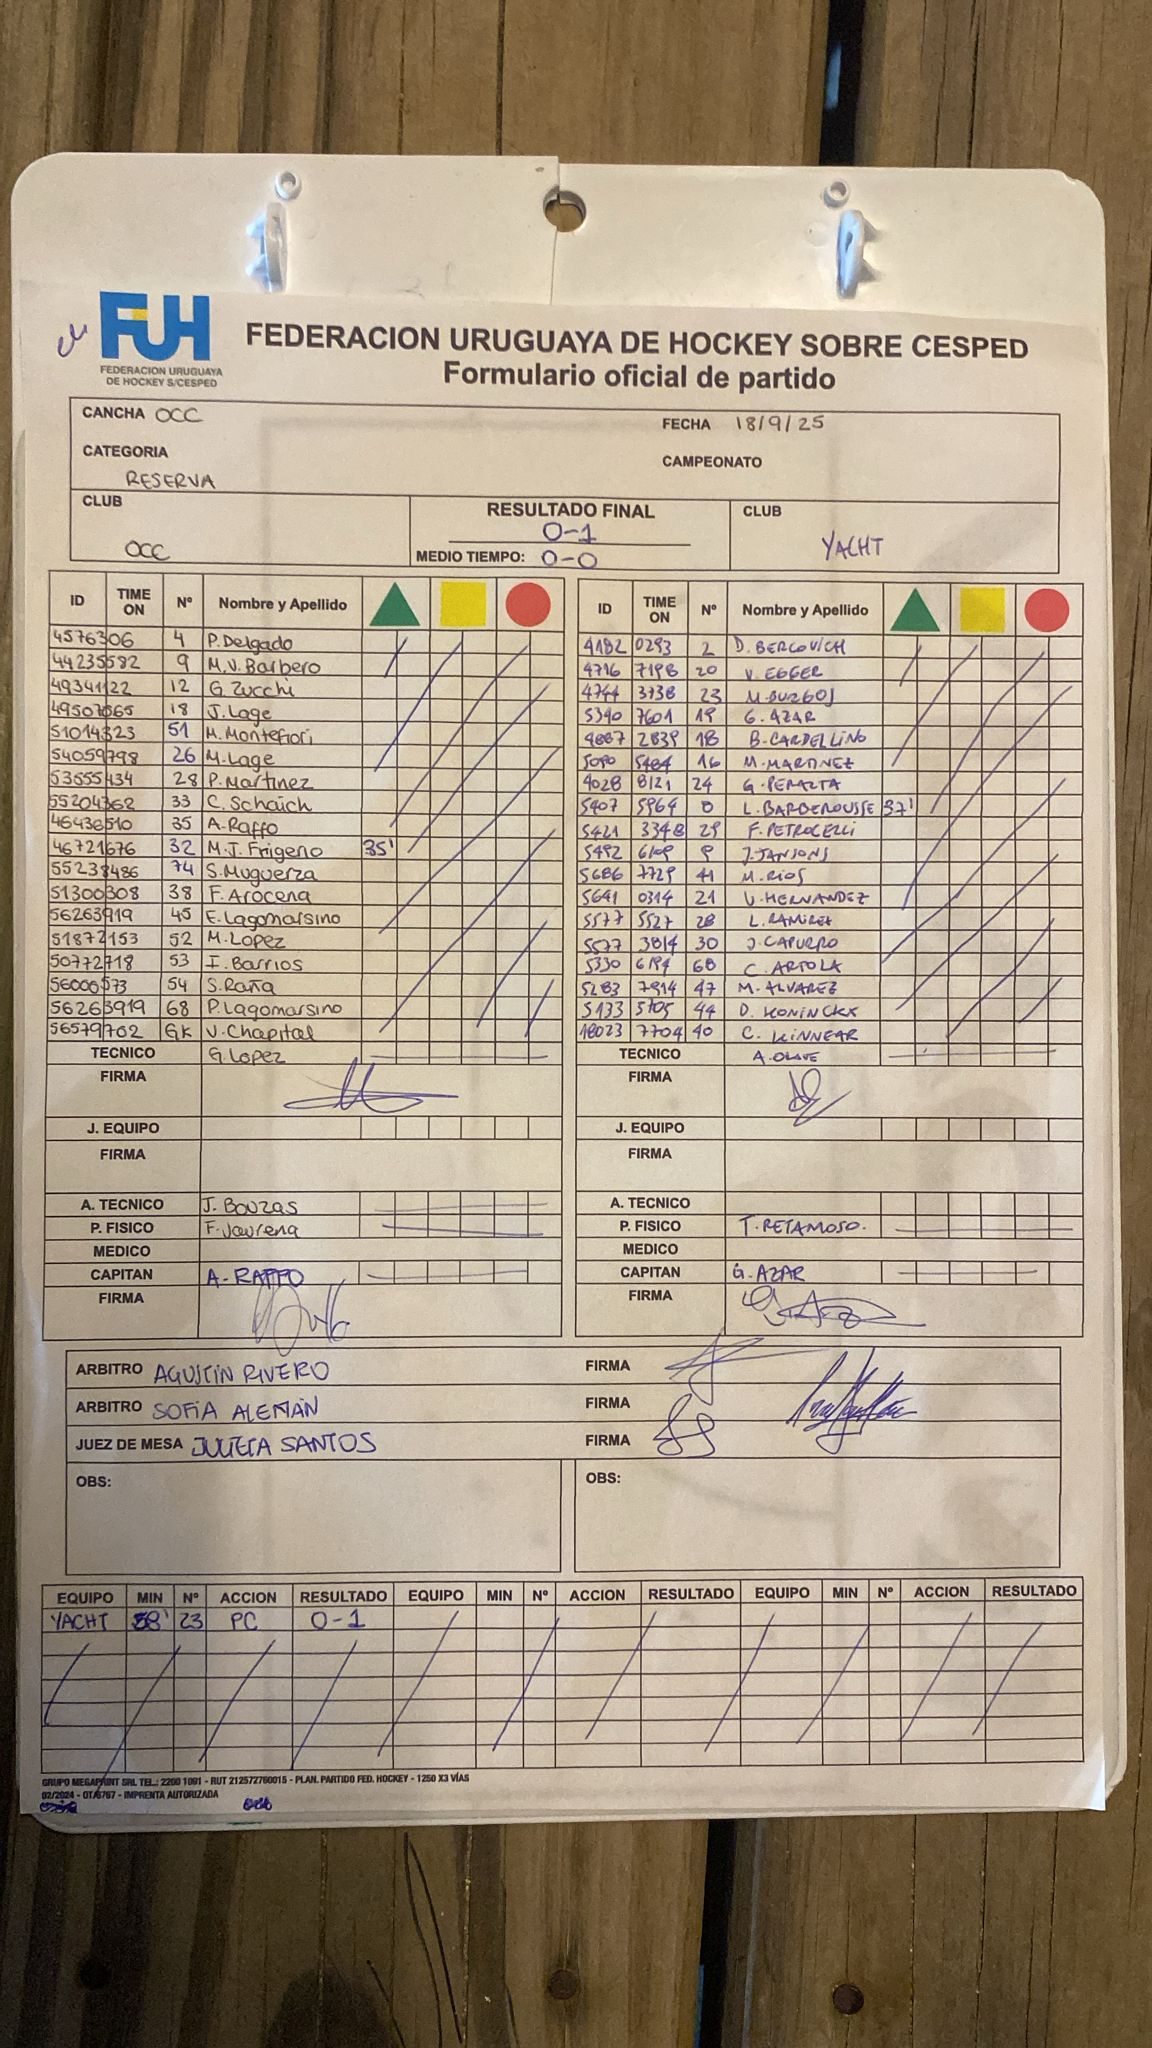 FUH
FEDERACION URUGUAYA
DE HOCKEY S/CESPED
FEDERACION URUGUAYA DE HOCKEY SOBRE CESPED
Formulario oficial de partido
CANCHA OCC
FECHA 18/9/25
CATEGORIA
CAMPEONATO
RESERVA
CLUB
RESULTADO FINAL
CLUB
0-1
OCC
YACHT
MEDIO TIEMPO: 0-0
ID TIME ON Nº Nombre y Apellido
4576306 4 P. Delgado
44235582 9 M.V. Barbero
49341122 12 G. Zucchi
49507065 18 J. Lage
51014323 51 M. Montefiori
54059798 26 M. Lage
53555434 28 P. Martinez
55204362 33 C. Schaich
46436510 35 A. Raffo
46721676 32 M.J. Frigeno 35'
55238486 74 S. Muguerza
51300308 38 F. Arocena
56263919 45 E. Lagomarsino
51872153 52 M. Lopez
50772718 53 I. Barrios
56000573 54 S. Raña
56263919 68 P. Lagomarsino
56579702 GK V. Chapital
TECNICO G. Lopez
FIRMA
J. EQUIPO
FIRMA
A. TECNICO J. Bouzas
P. FISICO F. Jaurena
MEDICO
CAPITAN A. RAFFO
FIRMA
ID TIME ON Nº Nombre y Apellido
4182 0293 2 D. BERCOVICH
4716 7198 20 V. EGGER
4744 3738 23 M. BURGOS
5340 7601 19 G. AZAR
4887 2839 18 B. CARDELLINO
16 M. MARTINEZ
4028 8121 24 G. PERALTA
5407 5964 8 L. BARBEROUSSE 37'
5421 3348 29 F. PETROCELLI
5492 6109 9 J. JANSONS
5686 7729 41 M. RIOS
5641 0314 21 V. HERNANDEZ
5577 5527 28 L. RAMIREZ
5577 3814 30 J. CAPURRO
5330 6194 68 C. ARTOLA
5283 7914 47 M. ALVAREZ
5133 5705 44 D. KONINCKX
18023 7704 40 C. KINNEAR
TECNICO A. OLAVE
FIRMA
J. EQUIPO
FIRMA
A. TECNICO
P. FISICO T. RETAMOSO.
MEDICO
CAPITAN G. AZAR
FIRMA
ARBITRO AGUSTÍN RIVERO FIRMA
ARBITRO SOFÍA ALEMÁN FIRMA
JUEZ DE MESA JULIETA SANTOS FIRMA
OBS:
OBS:
EQUIPO MIN Nº ACCION RESULTADO EQUIPO MIN Nº ACCION RESULTADO EQUIPO MIN Nº ACCION RESULTADO
YACHT 58' 23 PC 0-1
GRUPO MEGAPRINT SRL TEL.: 2200 1091 - RUT 212572760015 - PLAN. PARTIDO FED. HOCKEY - 1250 X3 VÍAS
02/2024 - OT/6767 - IMPRENTA AUTORIZADA